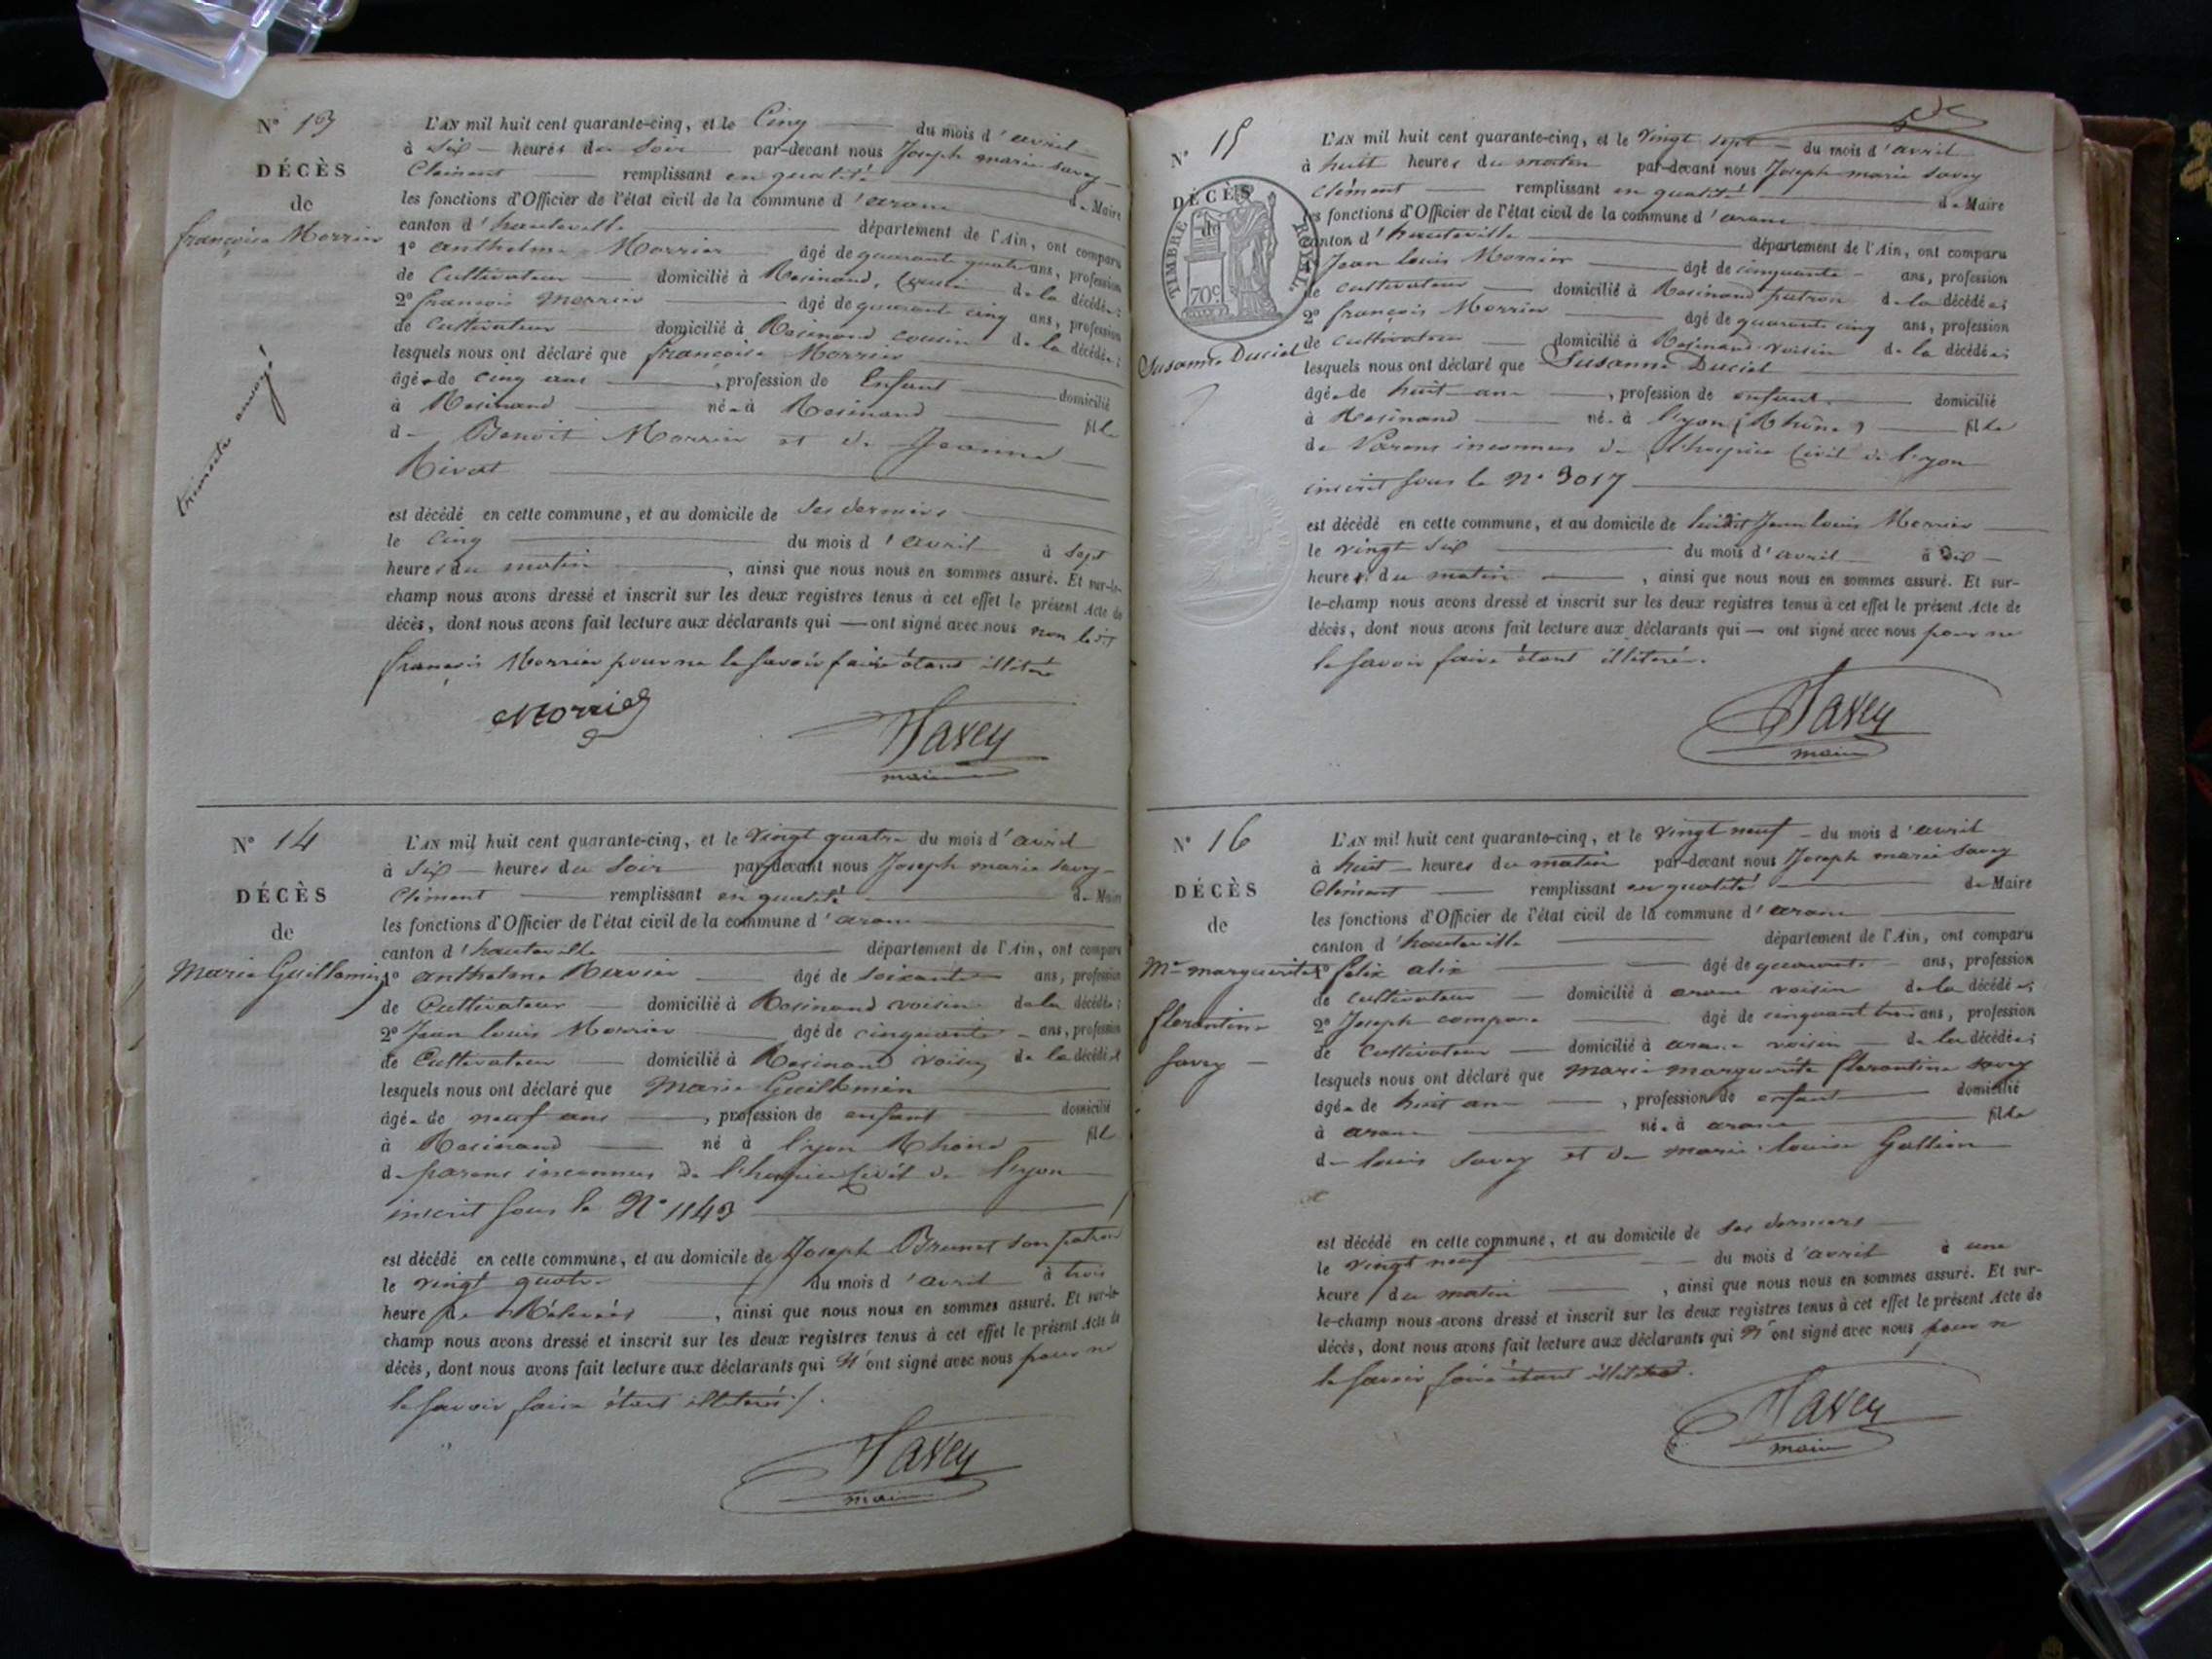 N° 13
DÉCÈS
de
françoise Morrier
trimestre envoyé
L'AN mil huit cent quarante-cinq, et le Cinq du mois d'avril
à Six heures du Soir par-devant nous Joseph marie savey
Clément remplissant en qualité de Maire
les fonctions d'Officier de l'état civil de la commune d'aranc
canton d'hauteville département de l'Ain, ont comparu
1° anthelme Morrier âgé de quarante quatre ans, profession
de Cultivateur domicilié à Résinand, Cousin de la décédée;
2° françois Morrier âgé de quarante cinq ans, profession
de Cultivateur domicilié à Résinand cousin de la décédée;
lesquels nous ont déclaré que françoise Morrier
âgée de cinq ans, profession de Enfant domicilié
à Résinand née à Résinand fille
de Benoit Morrier et de Jeanne
Rivat
est décédé en cette commune, et au domicile de ses derniers
le Cinq du mois d'avril à sept
heures du matin, ainsi que nous nous en sommes assuré. Et sur-le-
champ nous avons dressé et inscrit sur les deux registres tenus à cet effet le présent Acte de
décès, dont nous avons fait lecture aux déclarants qui ont signé avec nous non ledit
françois Morrier pour ne le savoir faire étant illitéré
Morrier
Savey
maire
N° 14
DÉCÈS
de
Marie Guillemin
L'AN mil huit cent quarante-cinq, et le Vingt quatre du mois d'avril
à Six heures du Soir par-devant nous Joseph marie savey
Clément remplissant en qualité de Maire
les fonctions d'Officier de l'état civil de la commune d'aranc
canton d'hauteville département de l'Ain, ont comparu
1° anthelme Ravier âgé de soixante ans, profession
de Cultivateur domicilié à Résinand voisin de la décédée;
2° Jean louis Morrier âgé de cinquante ans, profession
de Cultivateur domicilié à Résinand voisin de la décédée
lesquels nous ont déclaré que Marie Guillemin
âgée de neuf ans, profession de enfant domicilié
à Résinand né à lyon Rhône fille
de parens inconnus de l'hospice Civil de lyon
inscrit sous le N° 1143
est décédé en cette commune, et au domicile de Joseph Brunet son patron
le vingt quatre du mois d'avril à trois
heure de Rélevées, ainsi que nous nous en sommes assuré. Et sur-le-
champ nous avons dressé et inscrit sur les deux registres tenus à cet effet le présent Acte de
décès, dont nous avons fait lecture aux déclarants qui n'ont signé avec nous pour ne
le savoir faire étant illitérés.
Savey
maire
N° 15
DÉCÈS
de
TIMBRE ROYAL
70c
Susanne Duciel
L'AN mil huit cent quarante-cinq, et le vingt sept du mois d'avril
à huit heures du matin par-devant nous Joseph marie savey
Clément remplissant en qualité de Maire
les fonctions d'Officier de l'état civil de la commune d'aranc
canton d'hauteville département de l'Ain, ont comparu
Jean louis Morrier âgé de cinquante ans, profession
de cultivateur domicilié à Résinand patron de la décédée;
2° françois Morrier âgé de quarante cinq ans, profession
de cultivateur domicilié à Résinand voisin de la décédée;
lesquels nous ont déclaré que Susanne Duciel
âgée de huit ans, profession de enfant domicilié
à Résinand née à lyon (Rhône) fille
de Parens inconnus de l'hospice Civil de lyon
inscrit sous le N° 3017
est décédé en cette commune, et au domicile de Jean louis Morrier
le vingt six du mois d'avril à dix
heures du matin, ainsi que nous nous en sommes assuré. Et sur-
le-champ nous avons dressé et inscrit sur les deux registres tenus à cet effet le présent Acte de
décès, dont nous avons fait lecture aux déclarants qui ont signé avec nous pour ne
le savoir faire étant illitéré.
Savey
maire
N° 16
DÉCÈS
de
Mie marguerite
florentine
savey
L'AN mil huit cent quarante-cinq, et le vingt neuf du mois d'avril
à huit heures du matin par-devant nous Joseph marie savey
Clément remplissant en qualité de Maire
les fonctions d'Officier de l'état civil de la commune d'aranc
canton d'hauteville département de l'Ain, ont comparu
1° felix alix âgé de quarante ans, profession
de cultivateur domicilié à aranc voisin de la décédée;
2° Joseph âgé de cinquante trois ans, profession
de cultivateur domicilié à aranc voisin de la décédée;
lesquels nous ont déclaré que marie marguerite florentine savey
âgée de huit ans, profession de enfant domicilié
à aranc née à aranc fille
de louis savey et de marie louise Gallien
est décédé en cette commune, et au domicile de ses derniers
le vingt neuf du mois d'avril à une
heure du matin, ainsi que nous nous en sommes assuré. Et sur-
le-champ nous avons dressé et inscrit sur les deux registres tenus à cet effet le présent Acte de
décès, dont nous avons fait lecture aux déclarants qui n'ont signé avec nous pour ne
le savoir faire étant
Savey
maire